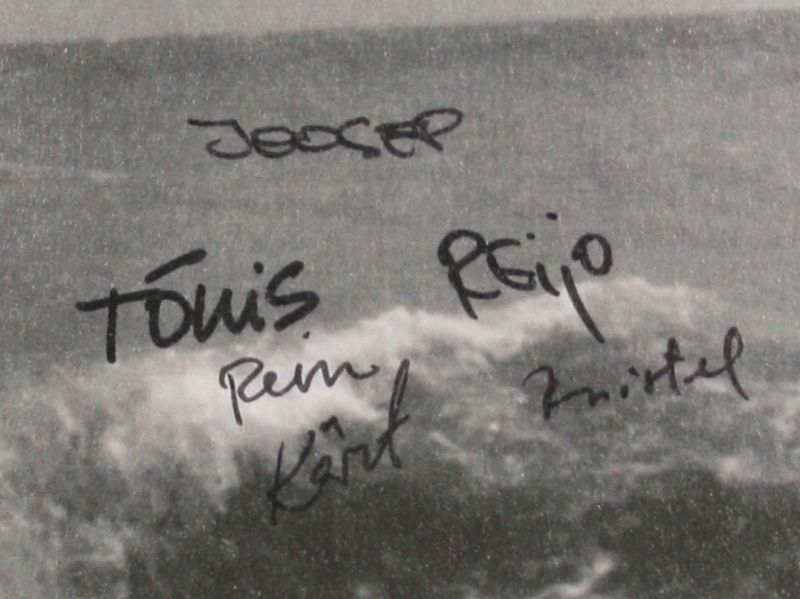 JOOSEP
Tõnis Reijo
Rein
Kärt